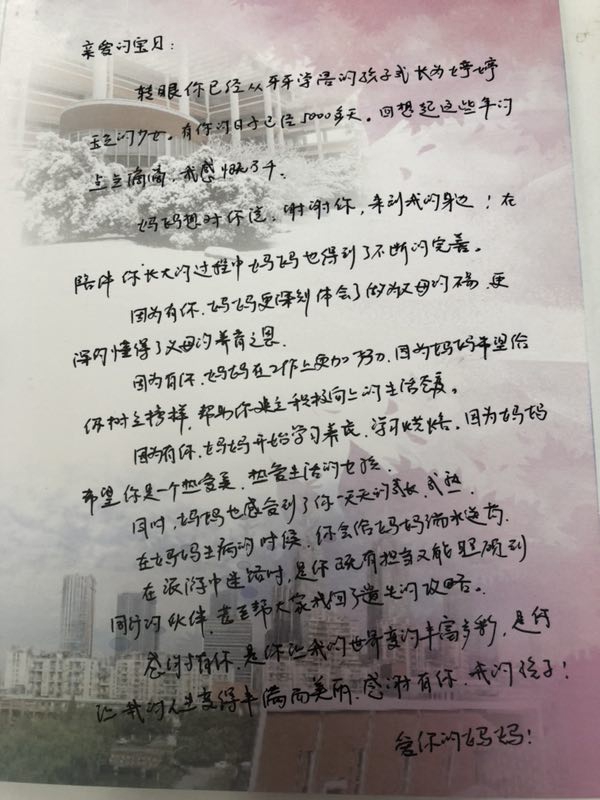 亲爱的宝贝：
转眼你已经从牙牙学语的孩子成长为婷婷
玉立的少女。有你的日子已经5000多天。回想起这些年的
点点滴滴，我感慨万千。
妈妈想对你说，谢谢你，来到我的身边！在
陪伴你长大的过程中妈妈也得到了不断的完善。
因为有你，妈妈更深刻体会了做为父母的不易，更
深的懂得了父母的养育之恩。
因为有你，妈妈在工作上更加努力，因为妈妈希望给
你树立榜样，帮助你建立积极向上的生活态度。
因为有你，妈妈开始学习养花，学习烘焙，因为妈妈
希望你是一个热爱美，热爱生活的女孩。
同时，妈妈也感受到了你一天天的成长，成熟。
在妈妈生病的时候，你会给妈妈端水送药。
在旅游中迷路时，是你既有担当又能照顾到
同行的伙伴，甚至帮大家找回了遗失的攻略。
感谢有你，是你让我的世界变的丰富多彩，是你
让我的人生变得丰满而美丽，感谢有你，我的孩子！
爱你的妈妈！